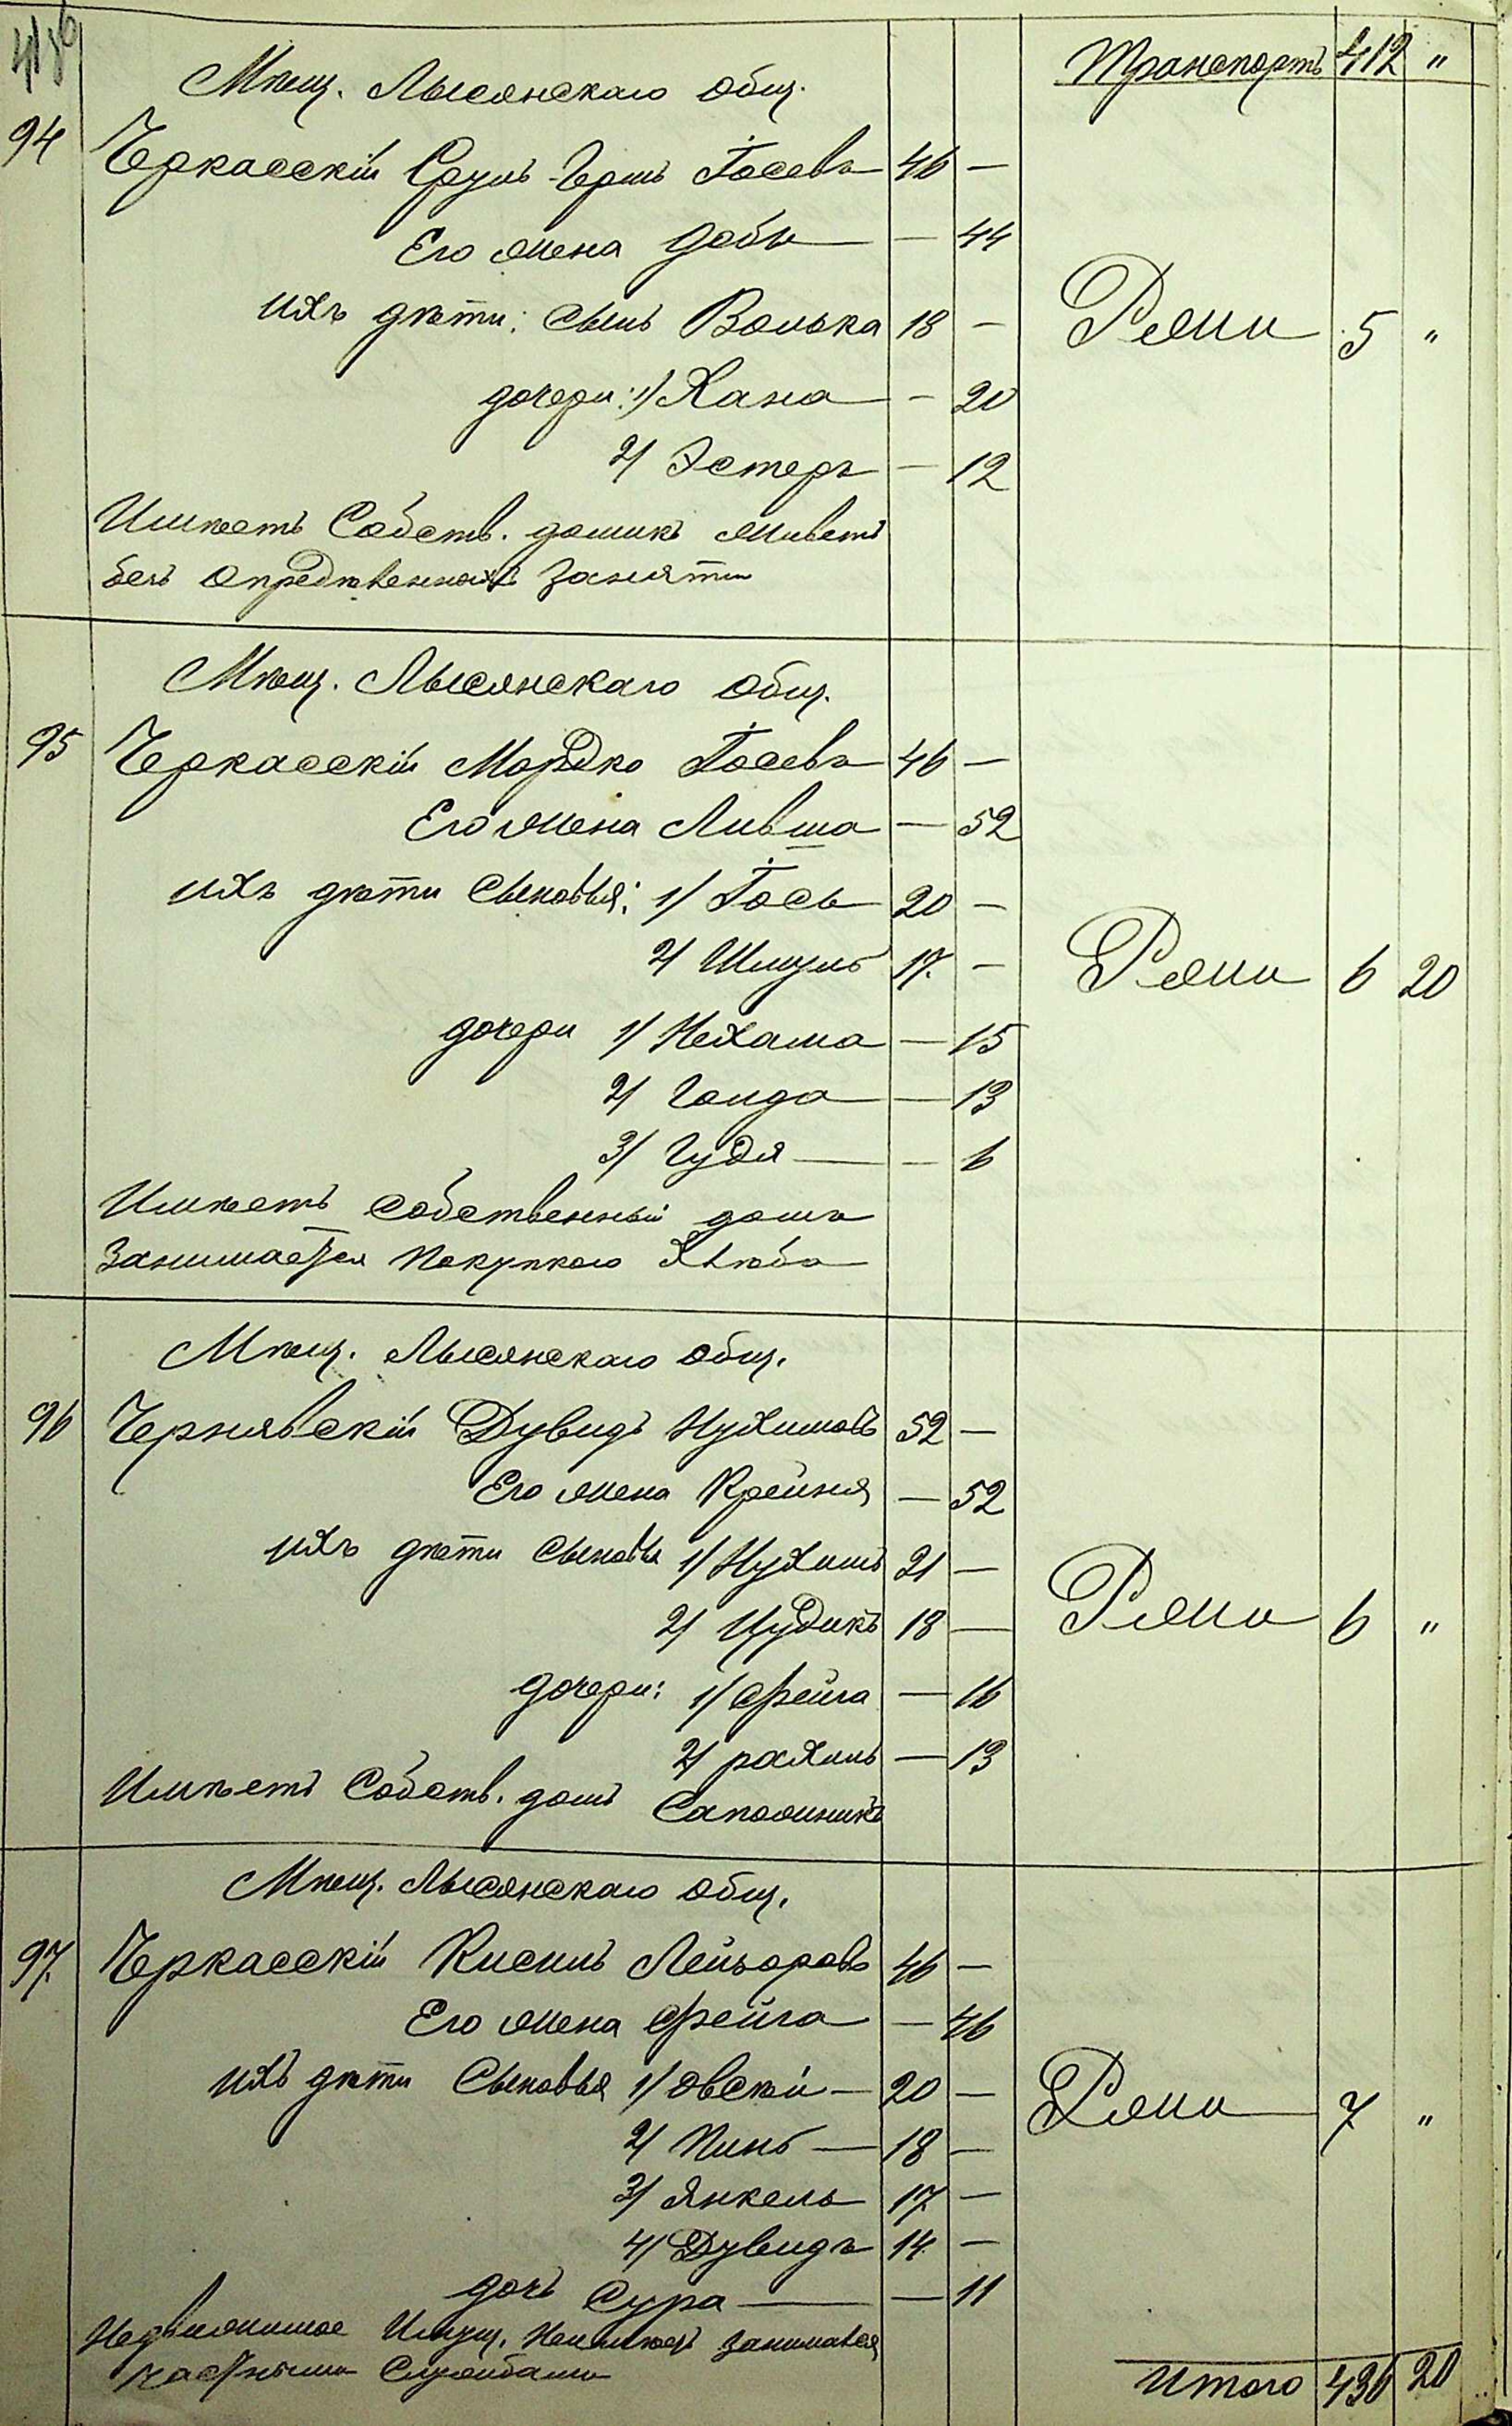 Транспортъ 412 "
Мѣщ. Лысянскаго общ.
94 Черкасскій Сруль-Гершъ Іосевъ 46 —
Его жена Доба — 44
ихъ дѣти: сынъ Волька 18 — Ряжи 5 "
дочери: 1/ Хана — 20
2/ Эстеръ — 12
Имѣетъ Собств. домикъ живетъ
безъ опредѣленныхъ занятій
Мѣщ. Лысянскаго общ.
95 Черкасскій Мордко Іосевъ 46 —
Его жена Лившa — 52
ихъ дѣти сыновья: 1/ Іось 20 —
2/ Шмуль 17. — Ряжи 6 20
дочери 1/ Нехама — 15
2/ Голда — 13
3/ Гудя — 6
Имѣетъ собственный домъ
занимается покупкою хлѣба
Мѣщ. Лысянскаго общ.
96 Чернявскій Дувидъ Нухимовъ 52 —
Его жена Крейня — 52
ихъ дѣти сыновья 1/ Нухимъ 21 —
2/ Цудикъ 18 — Ряжи 6 "
дочери: 1/ Фейга — 16
2/ рахиль — 13
Имѣетъ Собств. домъ Сапожникъ
Мѣщ. Лысянскаго общ.
97. Черкасскій Кисиль Лейзоровъ 46 —
Его жена Фейга — 46
ихъ дѣти Сыновья 1/ Овсей — 20 — Ряжи 7 "
2/ Пинь — 18 —
3/ Янкель 17 —
4/ Дувидъ 14 —
дочь Сура — 11
Недвижимое Имущ. Неимѣетъ занимается
частными Службами
Итого 436 20